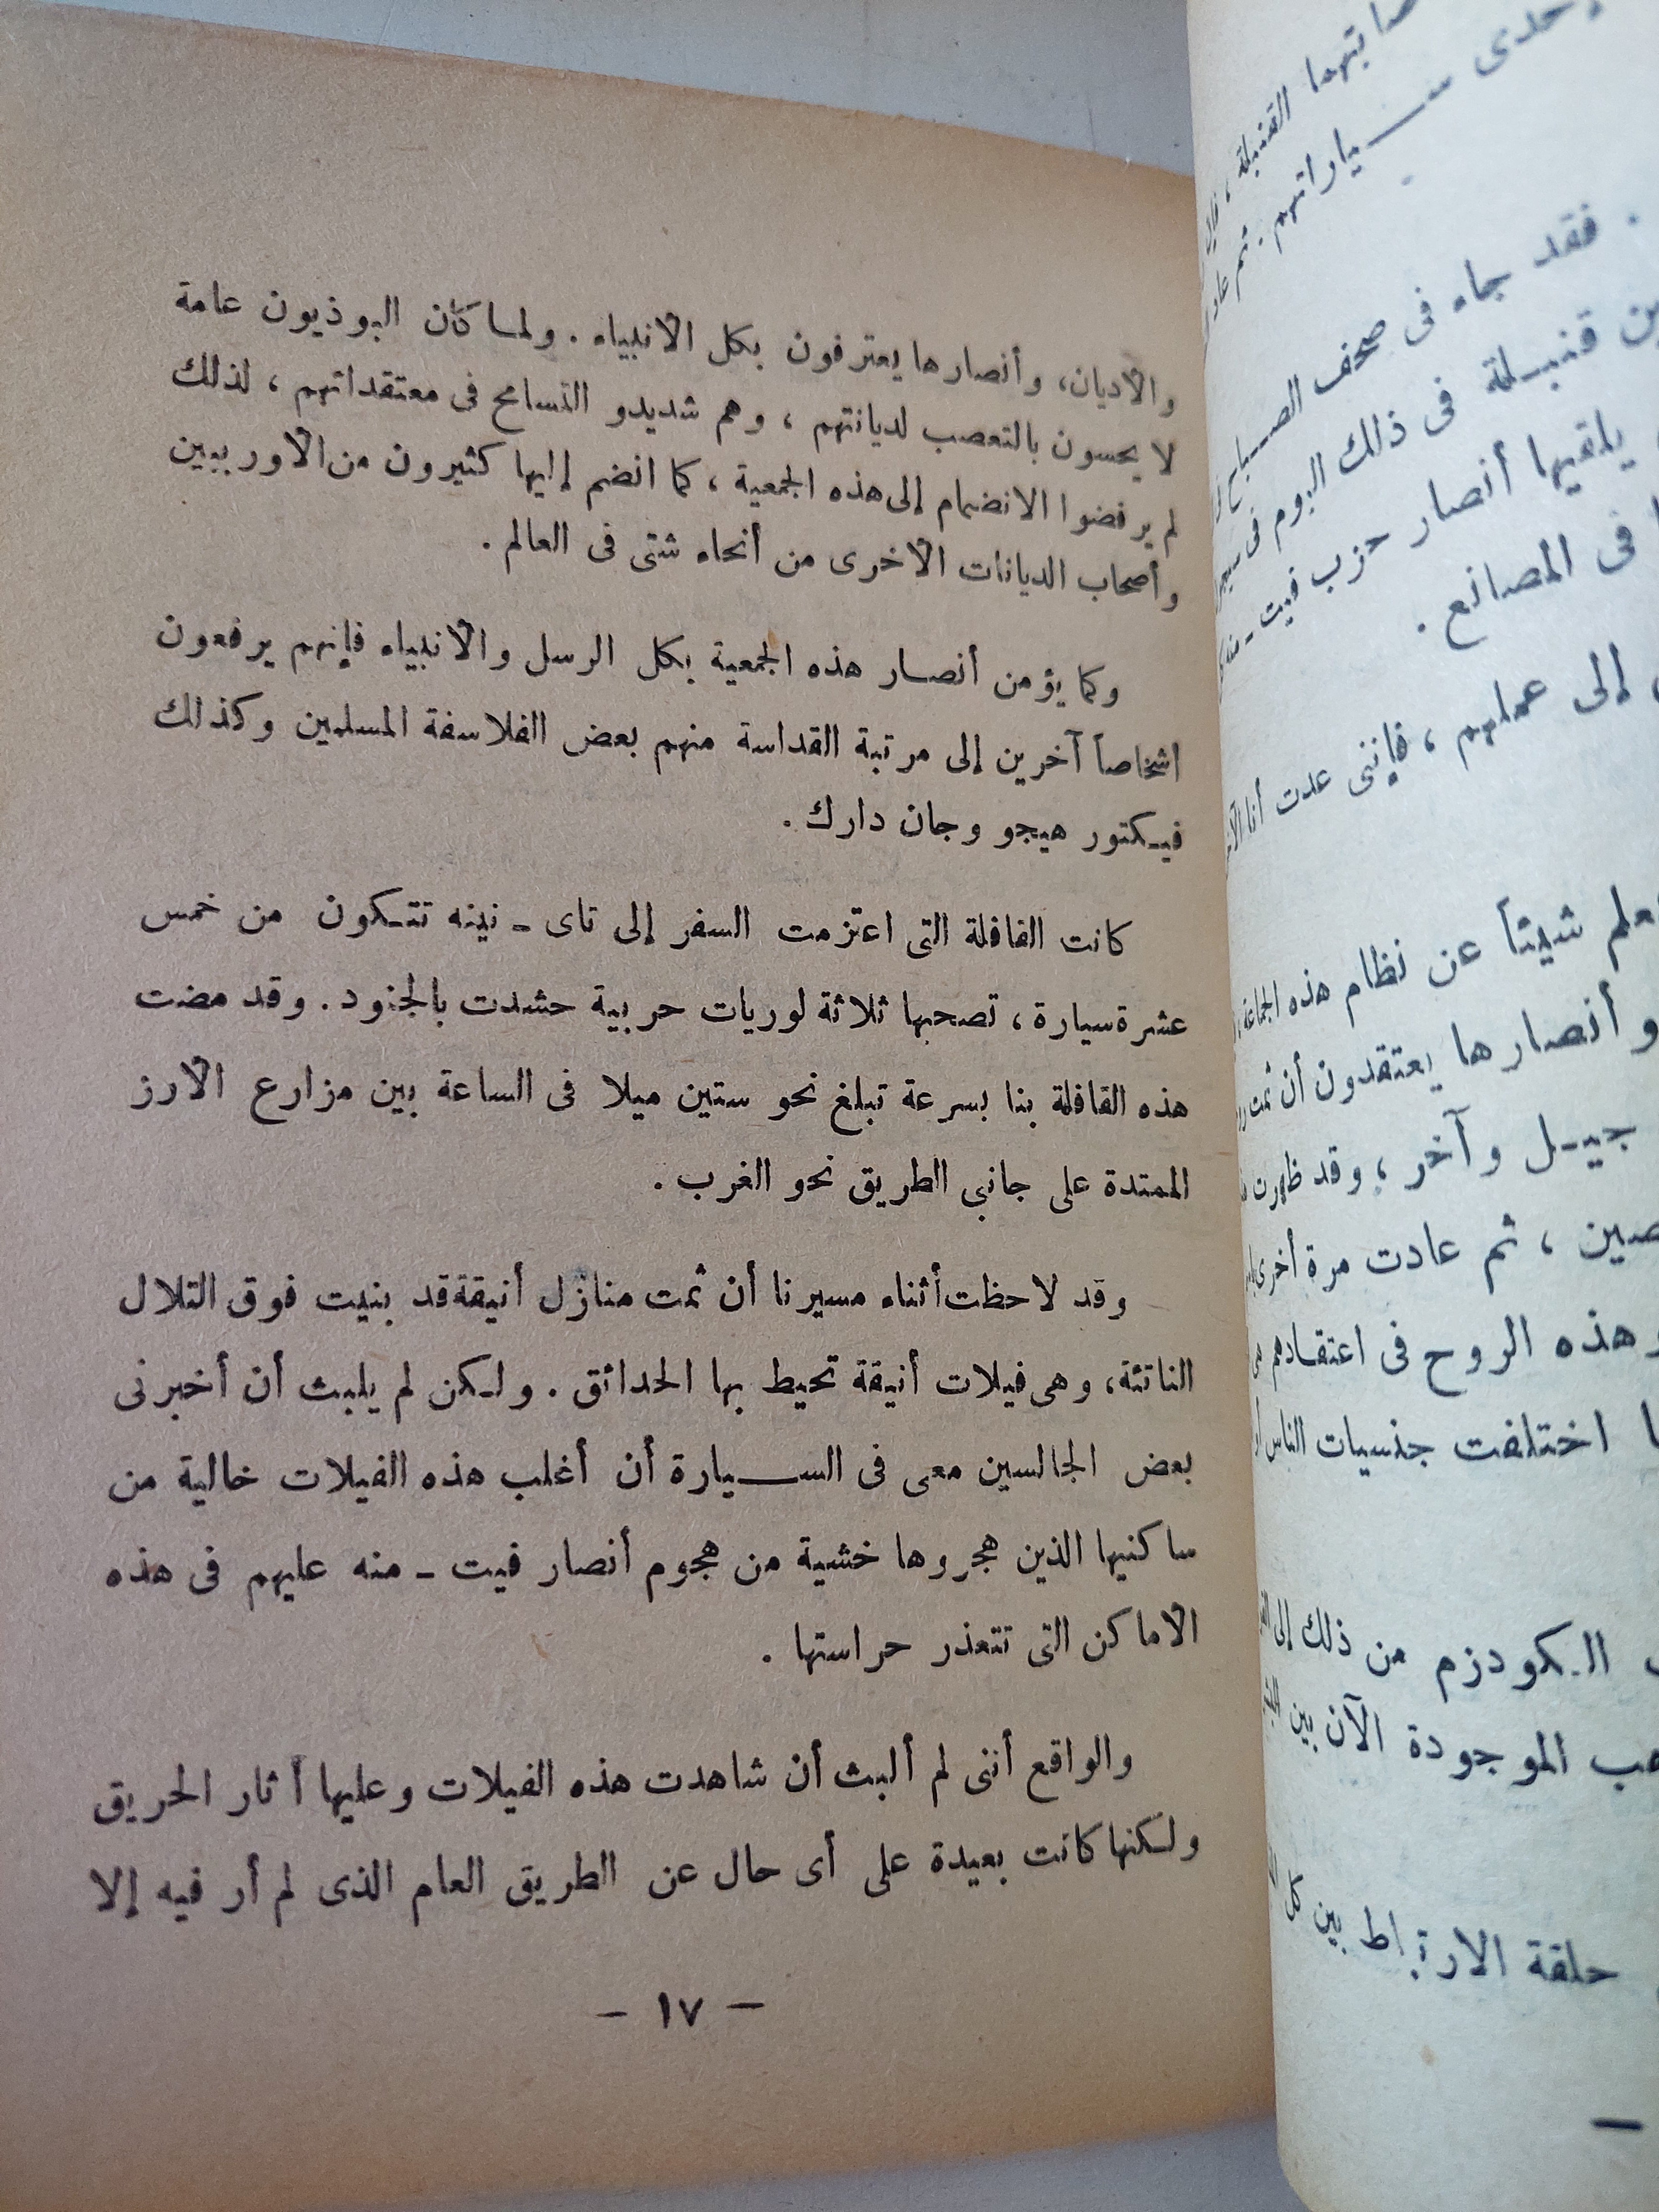 صابتهما القنبلة ،
إحدى سياراتهم . ثم
. فقد جاء فى صحف الصباح
قنبلة فى ذلك اليوم فى
يلقيها أنصار حزب فيت ـ
فى المصانع .
إلى عملهم ، فإننى عدت أنا
شيئاً عن نظام هذه الجماعة
وأنصارها يعتقدون أن ثمت
جيل وآخر ، وقد ظهرت
، ثم عادت مرة أخرى
وهذه الروح فى اعتقادهم
اختلفت جنسيات الناس
الكودزم من ذلك إلى
الموجودة الآن بين
حلقة الارتباط بين كل
والاديان، وأنصارها يعترفون بكل الانبياء . ولما كان البوذيون عامة
لا يحسون بالتعصب لديانتهم ، وهم شديدو التسامح فى معتقداتهم ، لذلك
لم يرفضوا الانضمام إلى هذه الجمعية ، كما انضم إليها كثيرون من الاوربيين
وأصحاب الديانات الاخرى من أنحاء شتى فى العالم .
وكما يؤمن أنصار هذه الجمعية بكل الرسل والانبياء فإنهم يرفعون
اشخاصاً آخرين إلى مرتبة القداسة منهم بعض الفلاسفة المسلمين وكذلك
فيكتور هيجو وجان دارك .
كانت القافلة التى اعتزمت السفر إلى تاى ـ نينه تتكون من خمس
عشرة سيارة ، تصحبها ثلاثة لوريات حربية حشدت بالجنود . وقد مضت
هذه القافلة بنا بسرعة تبلغ نحو ستين ميلا فى الساعة بين مزارع الارز
الممتدة على جانبى الطريق نحو الغرب .
وقد لاحظت أثناء مسيرنا أن ثمت منازل أنيقة قد بنيت فوق التلال
الناتئة، وهى فيلات أنيقة تحيط بها الحدائق . ولكن لم يلبث أن أخبرنى
بعض الجالسين معى فى السيارة أن أغلب هذه الفيلات خالية من
ساكنيها الذين هجروها خشية من هجوم أنصار فيت ـ منه عليهم فى هذه
الاماكن التى تتعذر حراستها .
والواقع أننى لم ألبث أن شاهدت هذه الفيلات وعليها أثار الحريق
ولكنها كانت بعيدة على أى حال عن الطريق العام الذى لم أر فيه إلا
— ١٧ —